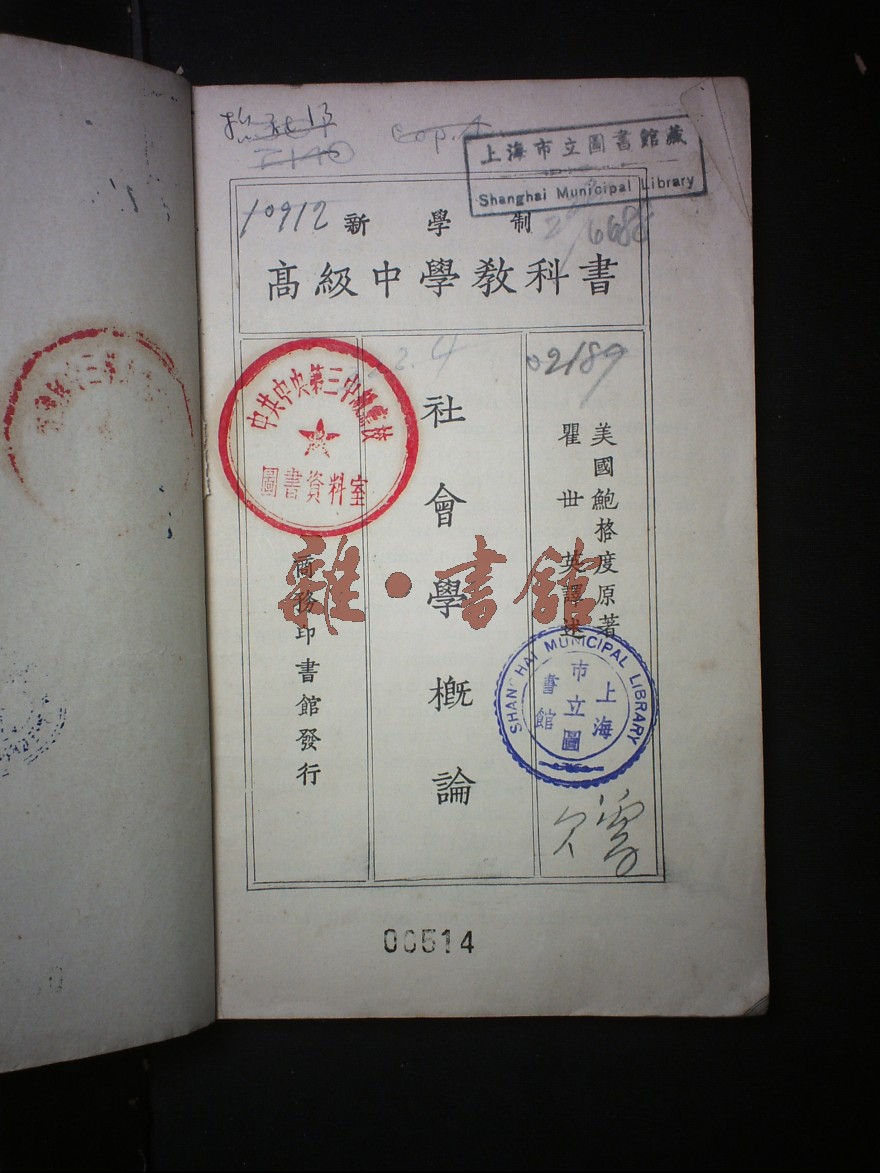 上海市立圖書館藏
Shanghai Municipal Library
10912
新學制
高級中學教科書
02189
美國鮑格度原著
瞿世英譯述
社會學概論
商務印書館發行
中共中央第三中級黨校
圖書資料室
雜·書館
SHANGHAI MUNICIPAL LIBRARY
上海
市立圖
書館
00514